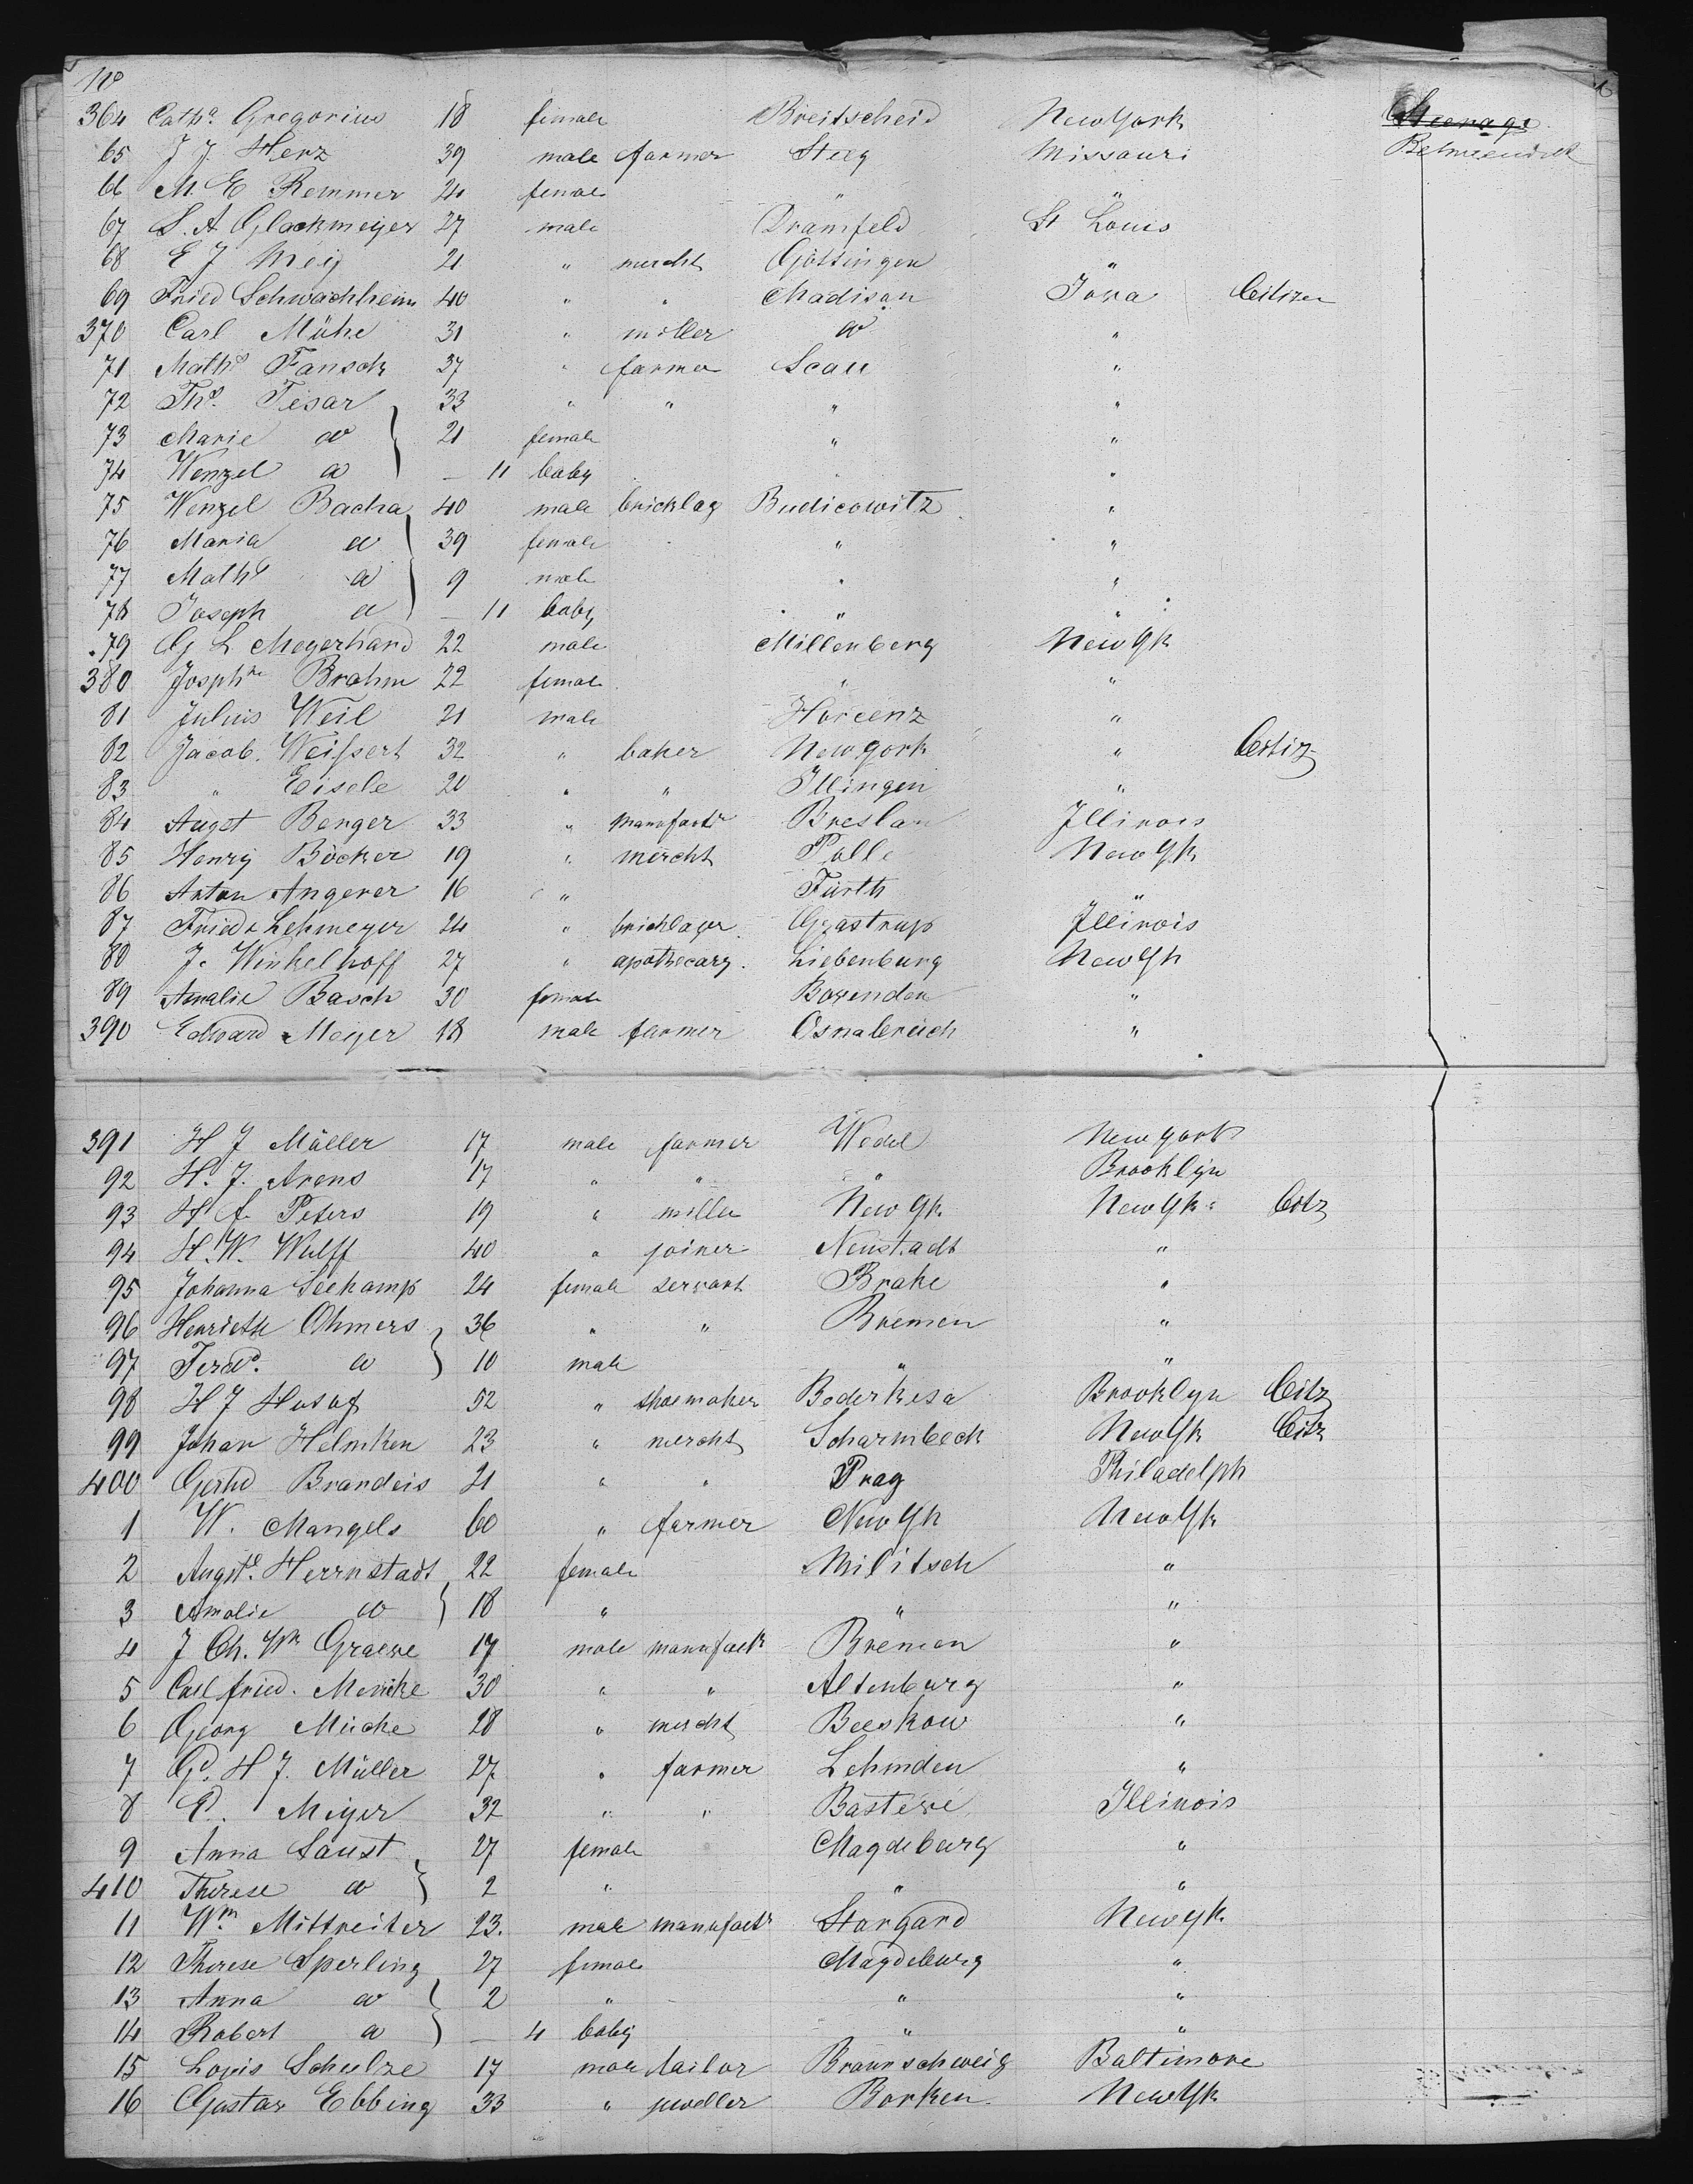 No
364 Cath.a Gregorius 18 female Breitscheid New York Steerage
65 J J Herz 39 male farmer Steeg Missouri Betweendeck
66 M. E Remmer 24 female " "
67 S. A Glackmeyer 27 male Dramfeld St Louis
68 E J Meij 21 " mercht Göttingen "
69 Fried Schwachheim 40 " " Madison Iowa Citizen
370 Carl Mühe 31 " miller do "
71 Maths Fansch 37 " farmer Scau "
72 Ths. Tesar 33 " " " "
73 Marie do 21 female " "
74 Wenzel do — 11 baby " "
75 Wenzel Bacha 40 male bricklay Budicowitz "
76 Maria do 39 female " "
77 Maths do 9 male " "
78 Joseph do — 11 baby " "
79 G L Meyerhard 22 male Millenberg New Yk
380 Josphne Brahm 22 female " "
81 Julius Weil 21 male Horcenz "
82 Jacob. Weissert 32 " baker New York " Citiz
83 " Eisele 20 " " Illingen "
84 Augst Berger 33 " manufactr Breslau Illinois
85 Henry Böcker 19 " mercht Polle New Yk
86 Anton Angerer 16 " Fürth "
87 Friedr Lehmeyer 24 " bricklayer Grastrup Illinois
88 J. Winkelhoff 27 " apothecary. Liebenburg New Yk
89 Amalie Basch 30 female Bovenden "
390 Edward Meyer 18 male farmer Osnabrück "
391 H J Müller 17 male farmer Wedel New York
92 H. J. Arens 17 " " " Brooklyn
93 H A Peters 19 " miller New Yk New Yk Citz
94 H. W. Wulff 40 " joiner Neustadt "
95 Johanna Seekamp 24 female servant Brake "
96 Henriette Ohmers 36 " " Bremen "
97 Ferdd. do 10 male " "
98 H J Husaf 52 " shoemaker Bederkesa Brooklyn Citz
99 Johan Helmken 23 " mercht Scharmbeck New Yk Citz
400 Gerhd Brandeis 21 " " Prag Philadelph
1 W. Mangels 60 " farmer New Yk New Yk
2 Augste. Herrnstadt 22 female Militsch "
3 Amalie do 18 " " "
4 J Ch. Wm Graeve 17 male manufactr Bremen "
5 Carl fried. Menike 30 " " Altenburg "
6 Georg Mücke 28 " mercht Beeskow "
7 Gd. H J. Müller 27 " farmer Lehmden "
8 D. Meijer 32 " " Basteve Illinois
9 Anna Saust 27 female Magdeburg "
410 Therese do 2 " " "
11 Wm Mittreiter 23. male manufactr Stargard New Yk
12 Therese Sperling 27 female Magdeburg "
13 Anna do 2 " " "
14 Robert do — 4 baby " "
15 Louis Schulze 17 male tailor Braunschweig Baltimore
16 Gustav Ebbing 33 " jweller Borken New Yk